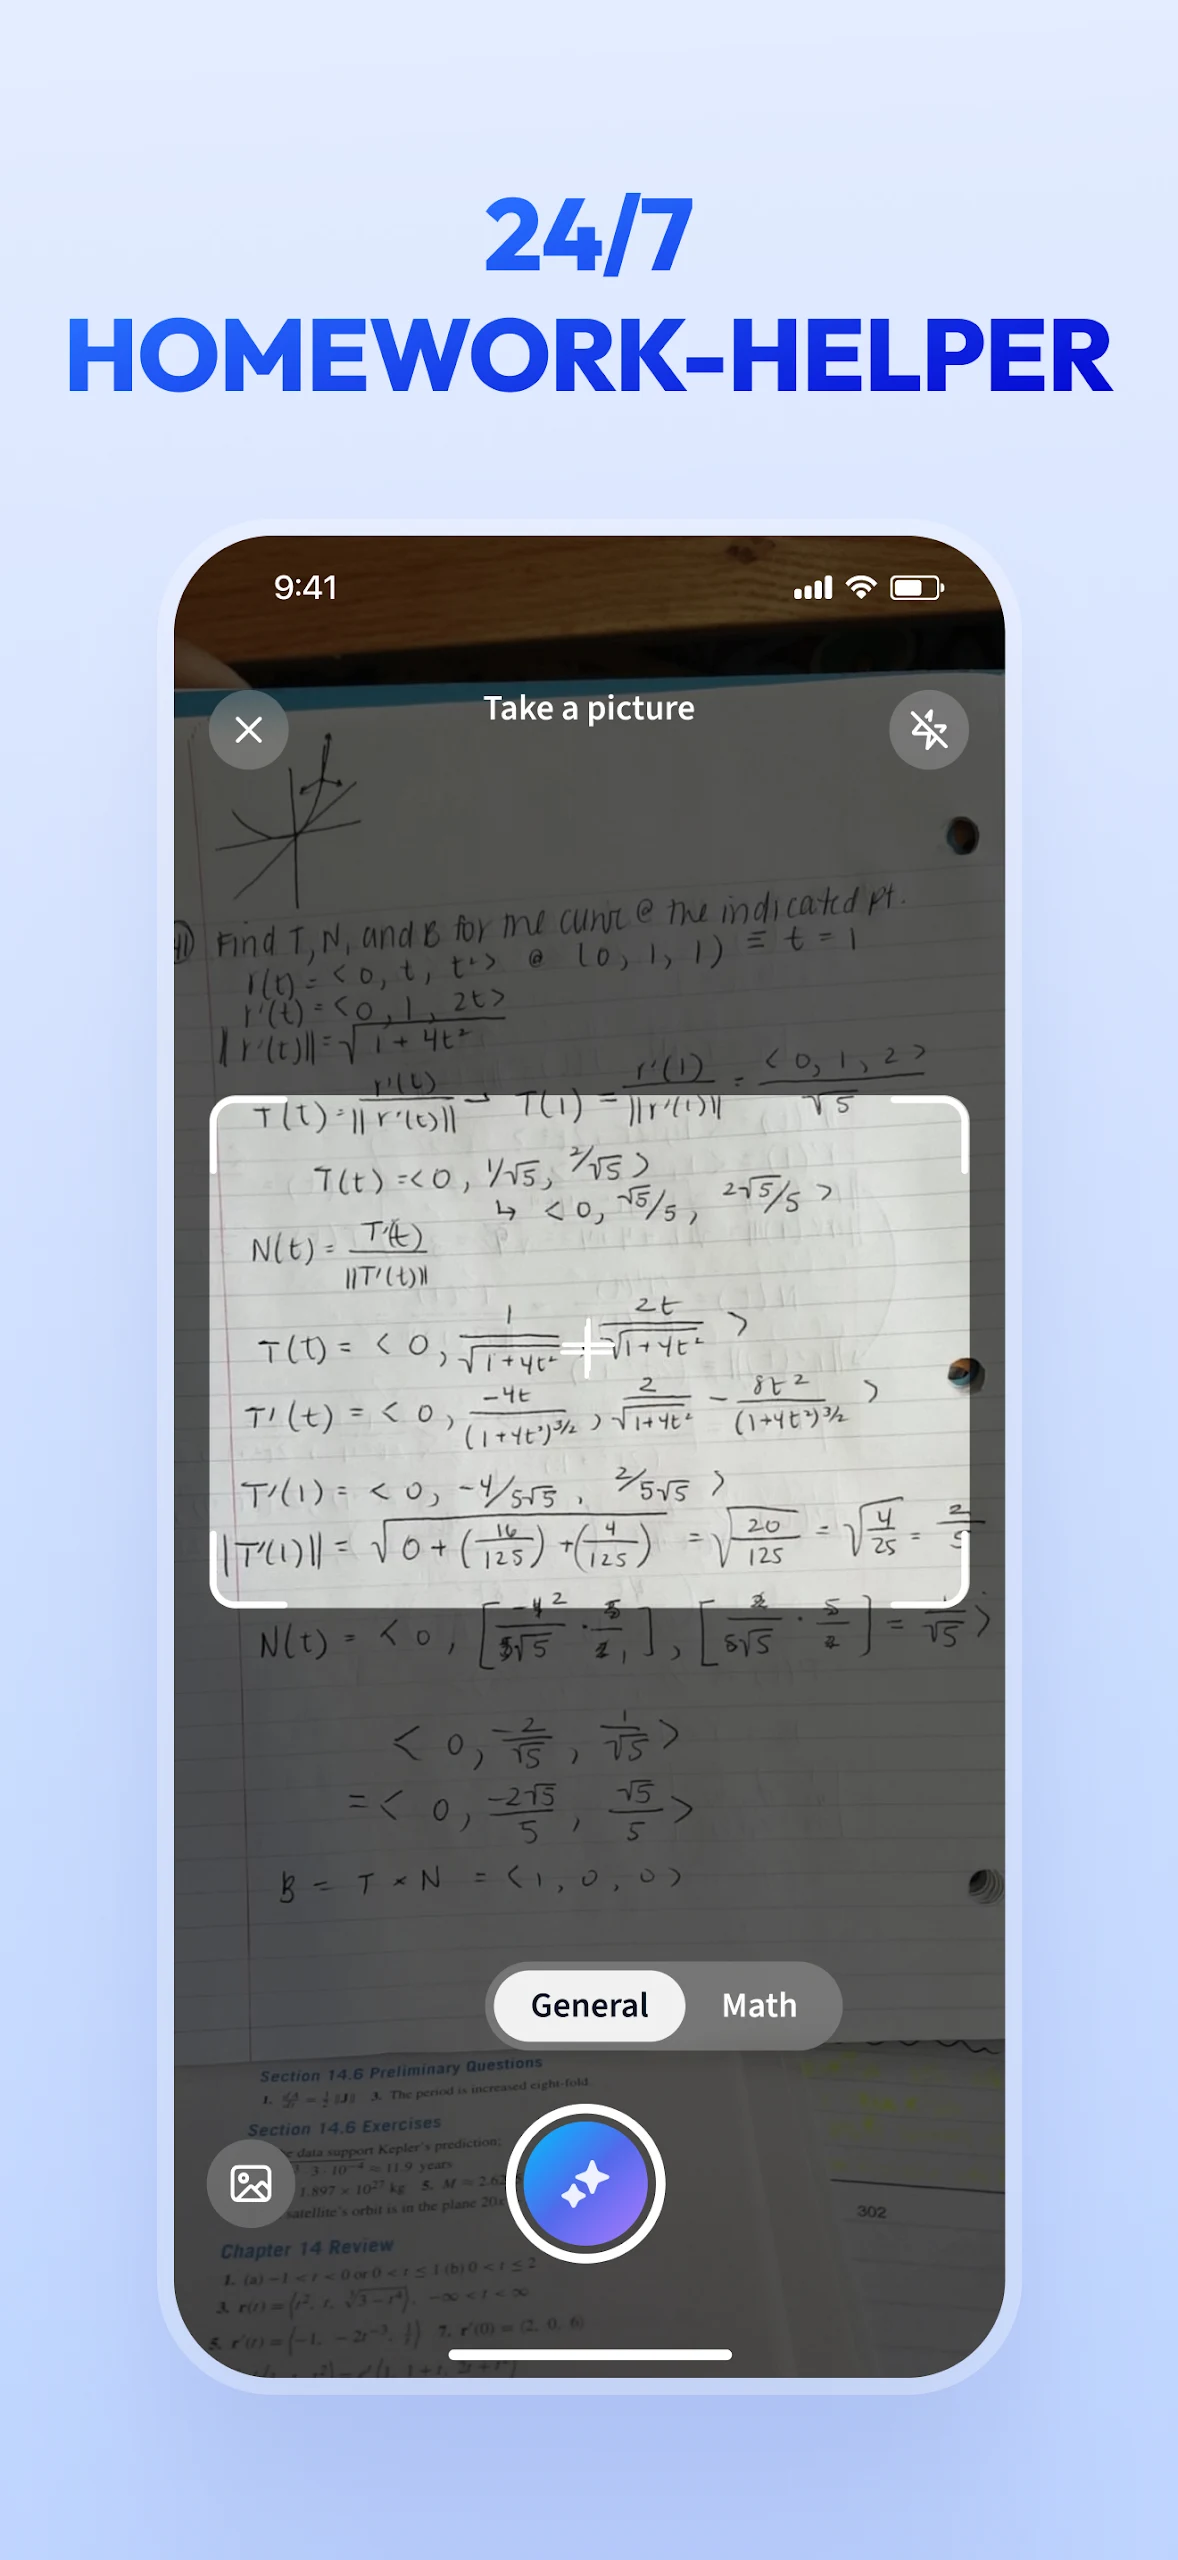 24/7
HOMEWORK-HELPER
9:41
Take a picture
Find T, N, and B for the curve @ the indicated pt.
r(t) = <0, t, t²> @ (0, 1, 1) ≡ t = 1
r'(t) = <0, 1, 2t>
||r'(t)|| = √(1 + 4t²)
T(t) = r'(t)/||r'(t)|| → T(1) = r'(1)/||r'(1)|| = <0, 1, 2>/√5
T(t) = <0, 1/√5, 2/√5>
↳ <0, √5/5, 2√5/5>
N(t) = T'(t)/||T'(t)||
T(t) = <0, 1/√(1+4t²), 2t/√(1+4t²)>
T'(t) = <0, -4t/(1+4t²)^3/2, 2/√(1+4t²) - 8t²/(1+4t²)^3/2>
T'(1) = <0, -4/5√5, 2/5√5>
||T'(1)|| = √(0 + (16/125) + (4/125)) = √(20/125) = √(4/25) = 2/5
N(t) = <0, [-4/5√5 · 5/2], [2/5√5 · 5/2] = 1/√5>
<0, -2/√5, 1/√5>
= <0, -2√5/5, √5/5>
B = T × N = <1, 0, 0>
General Math
Section 14.6 Preliminary Questions
3. The period is increased eight-fold.
Section 14.6 Exercises
data support Kepler's prediction;
3 · 10⁻⁴ ≈ 11.9 years
1.897 × 10²⁷ kg 5. M ≈ 2.62
satellite's orbit is in the plane 20x
302
Chapter 14 Review
1. (a) −1 < t < 0 or 0 < t ≤ 1 (b) 0 < t ≤ 2
3. r(t) = ⟨t², t, √(3 − t⁴)⟩, −∞ < t < ∞
5. r'(t) = ⟨−1, −2t⁻³, 7. r'(0) = ⟨2, 0, 6⟩